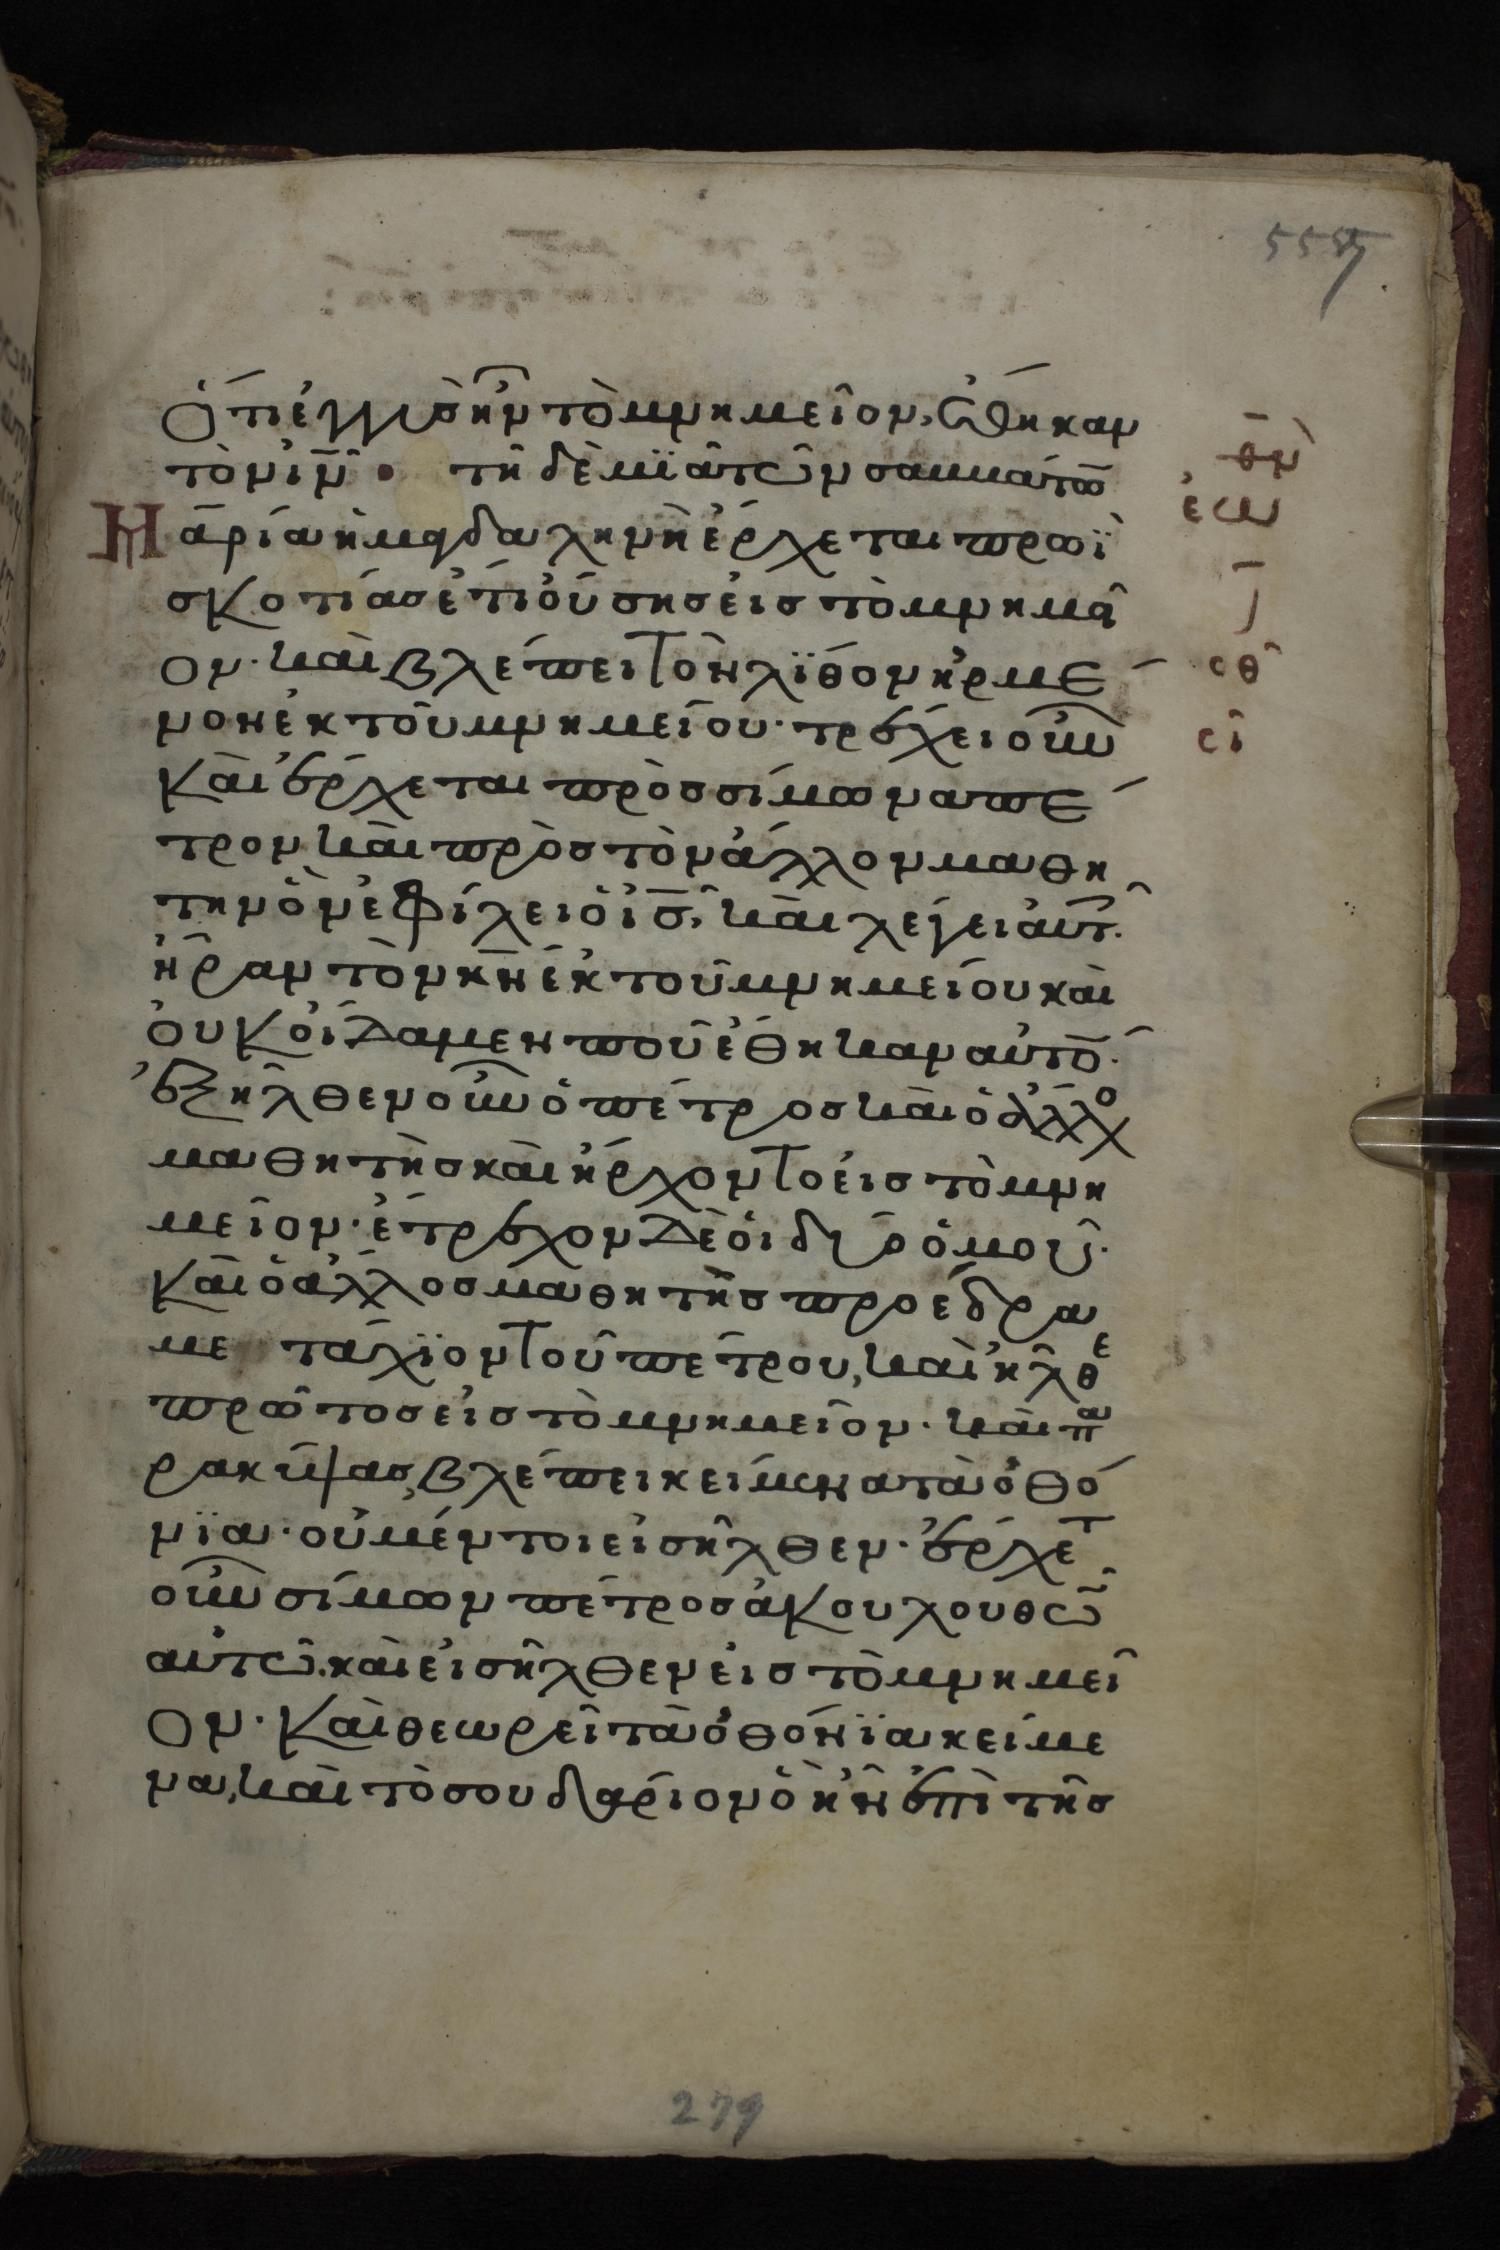 5557
ὅτι ἐγγὺς ἦν τὸ μνημεῖον, ἔθηκαν
τὸν ἰν̅ · τῆ δὲ μϊᾶ τῶν σαββάτω̅
Μαρία ἡ μαγδαληνὴ ἔρχεται πρωῒ
σκοτίας ἔτι οὔσης εἰς τὸ μνημεῖ
ον· καὶ βλέπει τὸν λίθον ἠρμέ
νον ἐκ τοῦ μνημείου· τρέχει οὖν
καὶ ἔρχεται πρὸς σίμωνα πέ
τρον καὶ πρὸς τὸν ἄλλον μαθη
τὴν ὃν ἐφίλει ὁ ἰς̅, καὶ λέγει αὐτ.
ἦραν τὸν κν̅ ἐκ τοῦ μνημείου καὶ
οὐκ οἴδαμεν ποῦ ἔθηκαν αὐτό·
ἐξῆλθεν οὖν ὁ πέτρος καὶ ὁ ἄλλο
μαθητὴς καὶ ἤρχοντο εἰς τὸ μνη
μεῖον· ἔτρεχον δὲ οἱ δύο ὁμοῦ·
καὶ ὁ ἄλλος μαθητὴς προέδρα
με τάχϊον τοῦ πέτρου, καὶ ἦλθε
πρῶτος εἰς τὸ μνημεῖον· καὶ πα
ρακύψας βλέπει κείμενα τὰ ὀθό
νϊα· οὐ μέντοι εἰσῆλθεν· ἔρχετ
οὖν σίμων πέτρος ἀκουλουθῶ
αὐτῶ. καὶ εἰσῆλθεν εἰς τὸ μνημεῖ
ον· καὶ θεωρεῖ τὰ ὀθόνϊα κείμε
να, καὶ τὸ σουδάριον ὃ ἦν ἐπὶ τῆς
θν
ἑω
σθ
σι
279